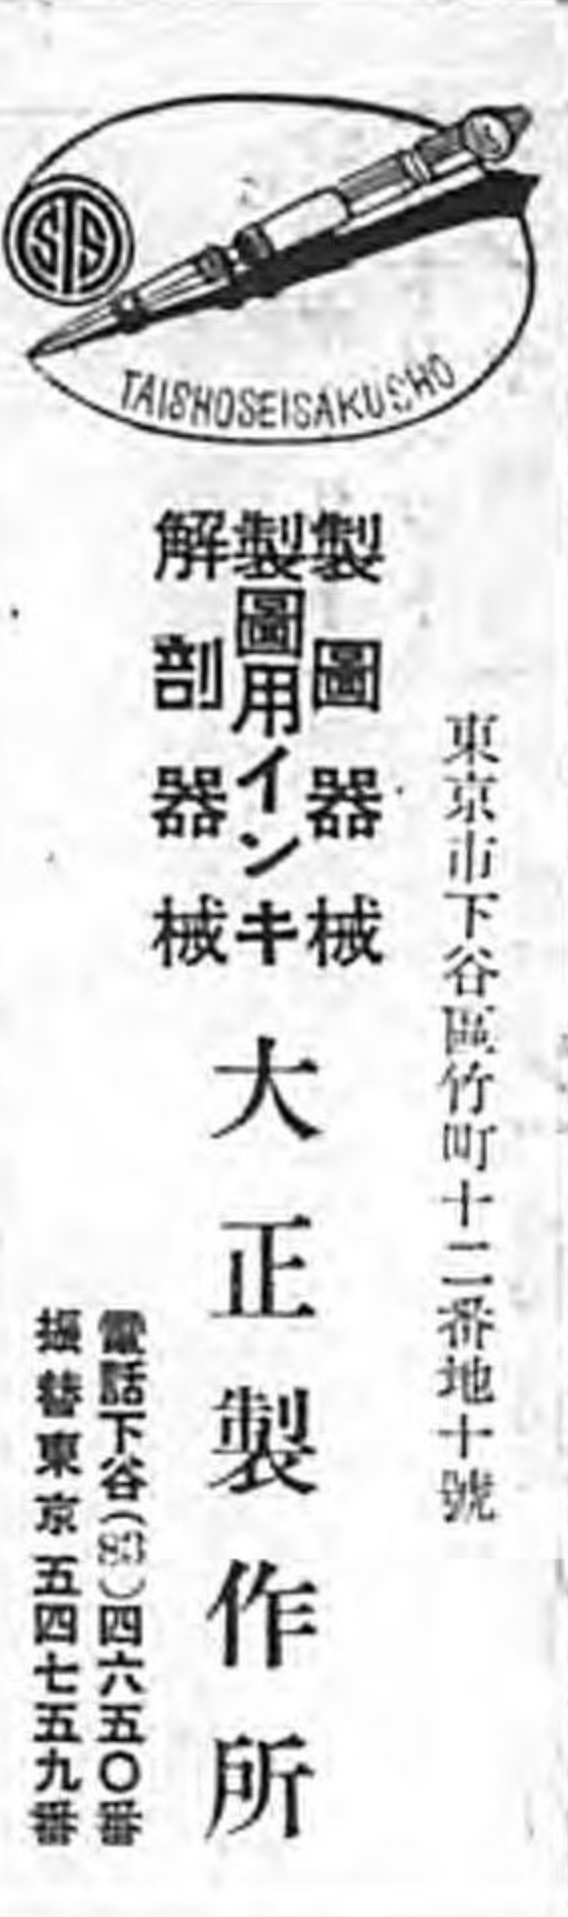 STS
TAISHOSEISAKUSHO
東京市下谷區竹町十二番地十號
製圖器械
製圖用インキ
解剖器械
大正製作所
電話下谷(83)四六五〇番
振替東京五四七五九番